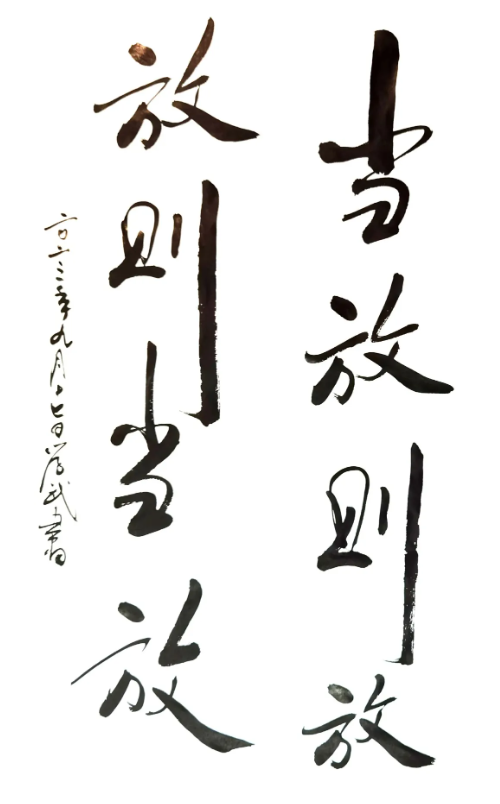 当放则放
放则当放
二〇二三年九月十七日
武书